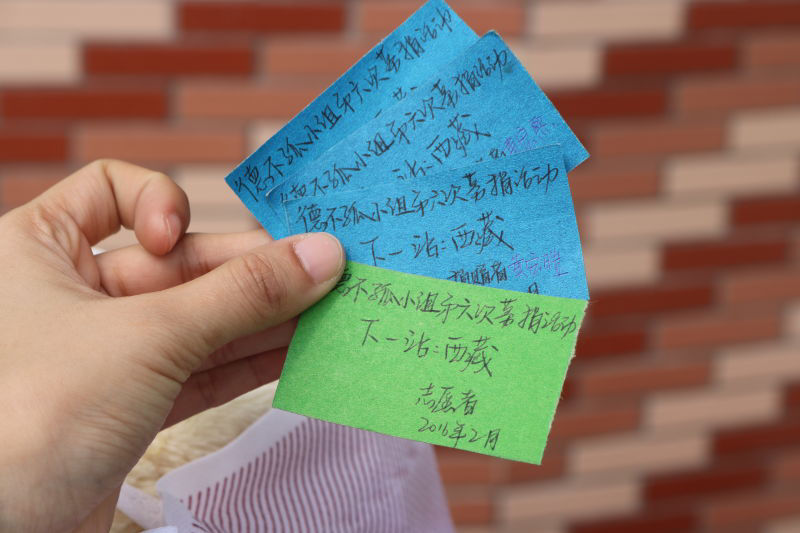 德不孤小组第六次募捐活动
德不孤小组第六次募捐活动
下一站:西藏
德不孤小组第六次募捐活动
下一站:西藏
捐赠者
德不孤小组第六次募捐活动
下一站:西藏
志愿者
2016年2月